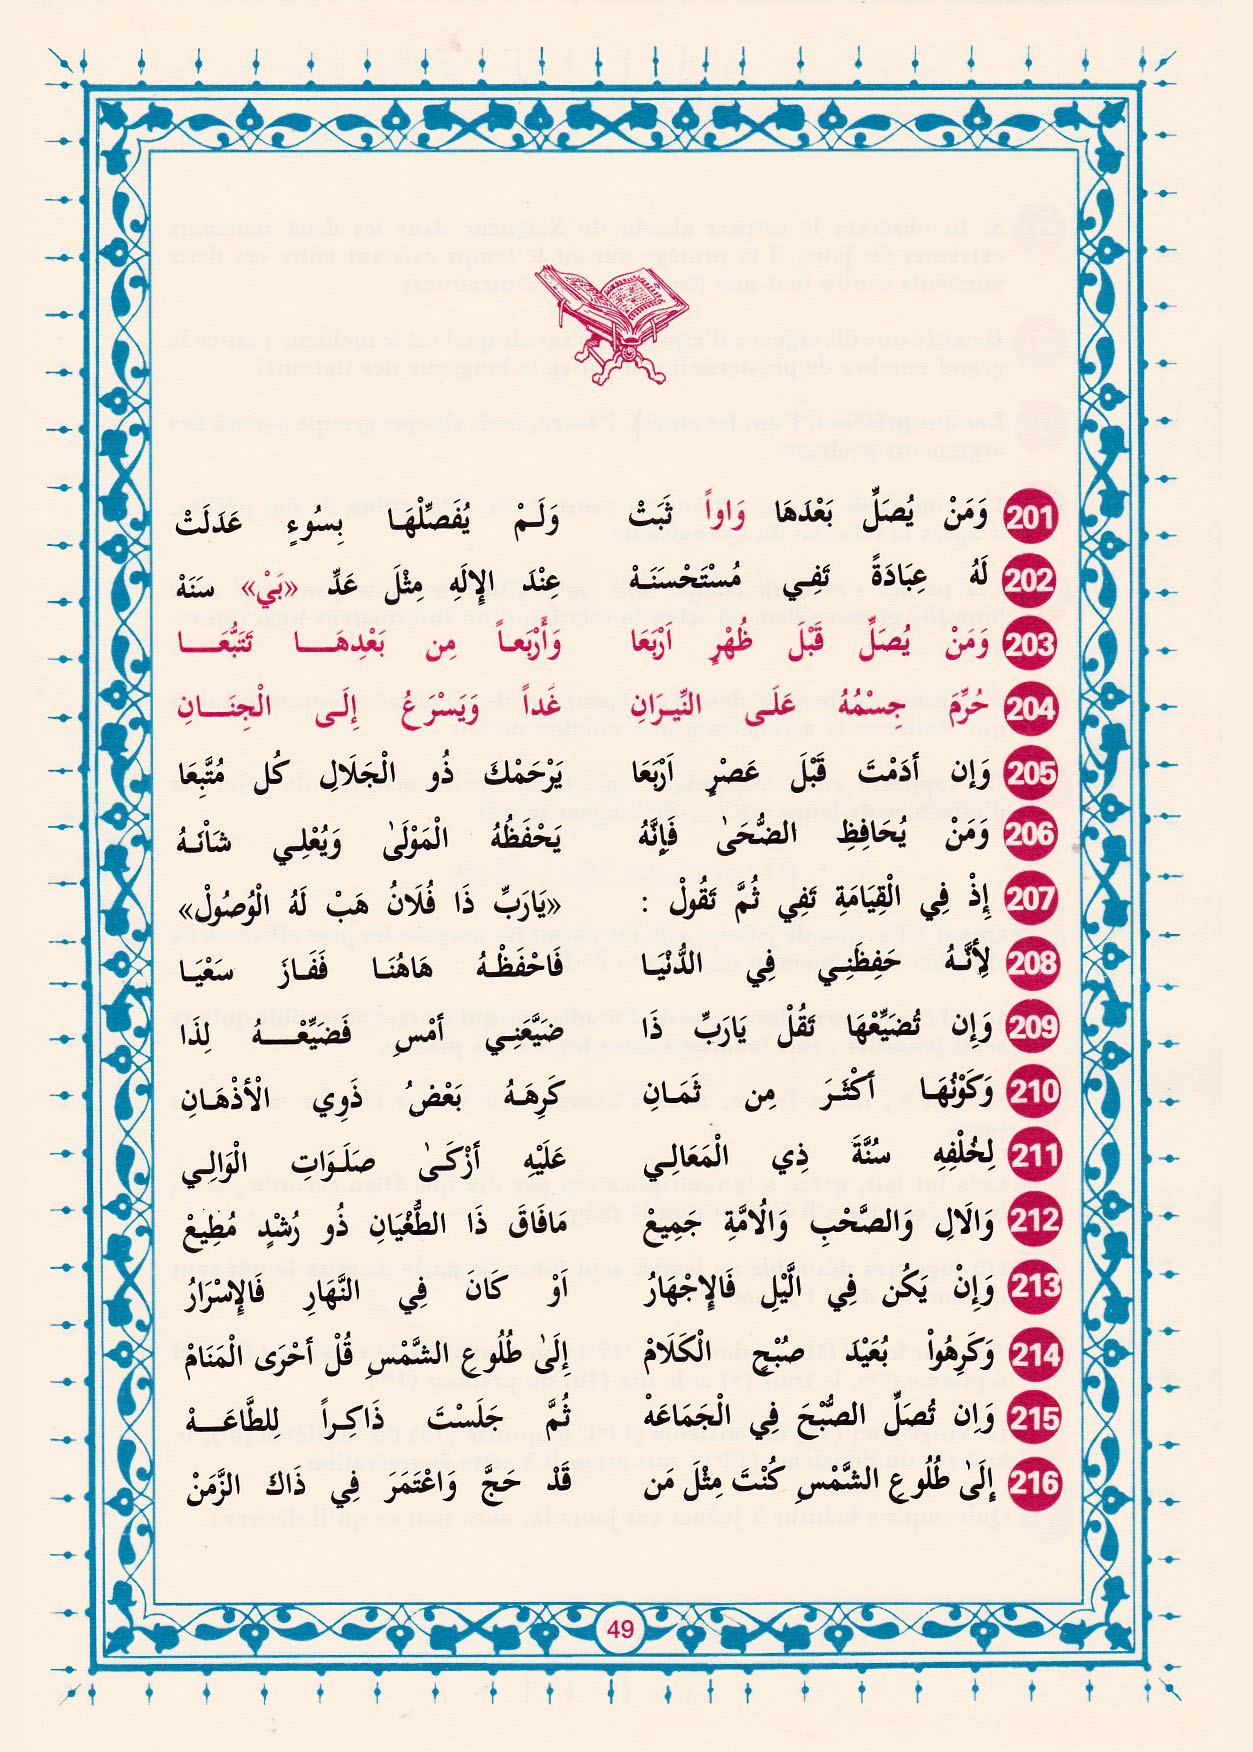 201 وَمَنْ يُصَلِّ بَعْدَهَا وَاواً ثَبَتْ وَلَـمْ يُفَصِّلْهَـا بِسُوءٍ عَدَلَتْ
202 لَهُ عِبَادَةً تَفِـي مُسْتَحْسَنَـهْ عِنْدَ الإِلَهِ مِثْلَ عَدِّ «بَيْ» سَنَهْ
203 وَمَنْ يُصَلِّ قَبْلَ ظُهْرٍ اَرْبَعَا وَأَرْبَعـاً مِن بَعْدِهَــا تَتَبُّعَــا
204 حُرِّمَ جِسْمُهُ عَلَـى النِّيـرَانِ غَداً وَيَسْرَعُ إِلَـى الْجِنَــانِ
205 وَإِن أدَمْتَ قَبْلَ عَصْرٍ اَرْبَعَا يَرْحَمْكَ ذُو الْجَلَالِ كُل مُتَّبِعَا
206 وَمَنْ يُحَافِظِ الضُّحَىٰ فَإِنَّهُ يَحْفَظُهُ الْمَوْلَىٰ وَيُعْلِـي شَانَـهُ
207 إِذْ فِي الْقِيَامَةِ تَفِي ثُمَّ تَقُولْ : «يَارَبِّ ذَا فُلَانُ هَبْ لَهُ الْوُصُولْ»
208 لِأَنَّـهُ حَفِظَنِـي فِـي الدُّنْيَـا فَاحْفَظْـهُ هَاهُنَـا فَفَـازَ سَعْيَـا
209 وَإِن تُضَيِّعْهَا تَقُلْ يَارَبِّ ذَا ضَيَّعَنِـي أَمْسِ فَضَيِّعْـــهُ لِذَا
210 وَكَوْنُهَـا أَكْثَـرَ مِن ثَمَـانِ كَرِهَـهُ بَعْضُ ذَوِي الْأَذْهَـانِ
211 لِخُلْفِهِ سُنَّةَ ذِي الْمَعَالِـي عَلَيْهِ أَزْكَـىٰ صَلَـوَات الْوَالِـي
212 وَالَالِ وَالصَّحْبِ وَالُامَّةِ جَمِيعْ مَافَاقَ ذَا الطُّغْيَانِ ذُو رُشْدٍ مُطِيعْ
213 وَإِنْ يَكُن فِي الَّيْلِ فَالإِجْهَارُ اَوْ كَانَ فِي النَّهَارِ فَالإِسْرَارُ
214 وَكَرِهُواْ بُعَيْدَ صُبْحٍ الْكَلَامْ إِلَىٰ طُلُوعِ الشَّمْسِ قُلْ أحْرَى الْمَنَامْ
215 وَإِن تُصَلِّ الصُّبْحَ فِي الْجَمَاعَهْ ثُمَّ جَلَسْتَ ذَاكِـراً لِلطَّاعَــهْ
216 إِلَىٰ طُلُوعِ الشَّمْسِ كُنْتَ مِثْلَ مَن قَدْ حَجَّ وَاعْتَمَرَ فِي ذَاكَ الزَّمَنْ
49